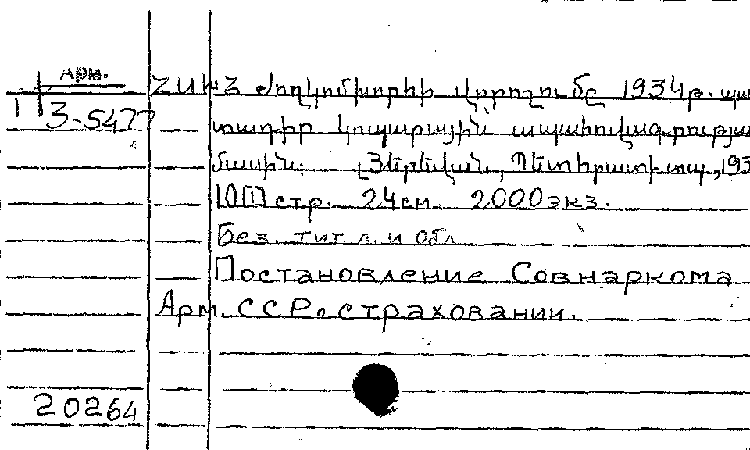 Арм.
1 3-5477
ՀՍԽՀ Ժողկոմխորհի կորոշումը 1934թ. պա
տադիր կոպարային ապահովագրության
մասին. Յերեվան, Պետհրատ. տպ., 193
10 стр. 24 см 2000 экз.
Без тит л. и обл
Постановление Совнаркома
Арм. ССР о страховании.
20264